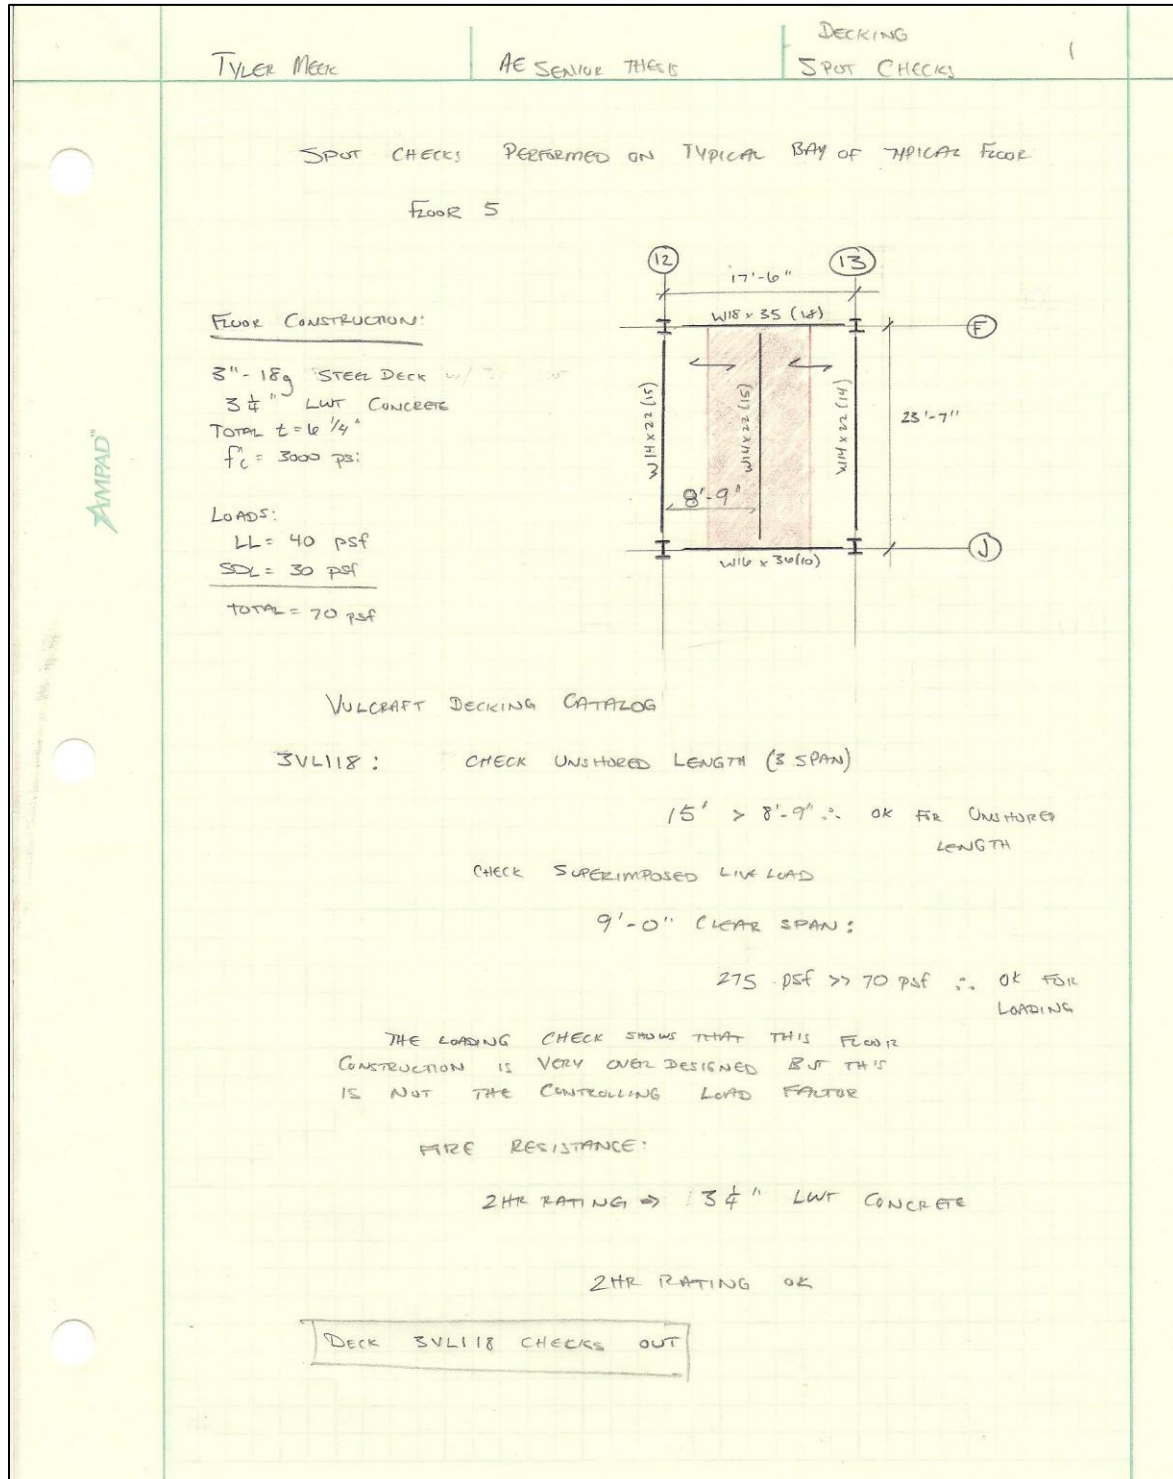 TYLER MEEK
AE SENIOR THESIS
DECKING
SPOT CHECKS
1
SPOT CHECKS PERFORMED ON TYPICAL BAY OF TYPICAL FLOOR
FLOOR 5
FLOOR CONSTRUCTION:
3"-18g STEEL DECK
3 1/4" LWT CONCRETE
TOTAL t = 6 1/4"
f'c = 3000 psi
LOADS:
LL = 40 psf
SDL = 30 psf
TOTAL = 70 psf
12
13
17'-6"
W18 x 35 (18)
F
W14 x 22 (15)
W14 x 22 (15)
W14 x 22 (14)
23'-7"
8'-9"
W16 x 36 (10)
J
AMPAD™
VULCRAFT DECKING CATALOG
3VLI18: CHECK UNSHORED LENGTH (3 SPAN)
15' > 8'-9" ∴ OK FOR UNSHORED
LENGTH
CHECK SUPERIMPOSED LIVE LOAD
9'-0" CLEAR SPAN:
275 psf >> 70 psf ∴ OK FOR
LOADING
THE LOADING CHECK SHOWS THAT THIS FLOOR
CONSTRUCTION IS VERY OVER DESIGNED BUT THIS
IS NOT THE CONTROLLING LOAD FACTOR
FIRE RESISTANCE:
2HR RATING ⇒ 3 1/4" LWT CONCRETE
2HR RATING OK
DECK 3VLI18 CHECKS OUT